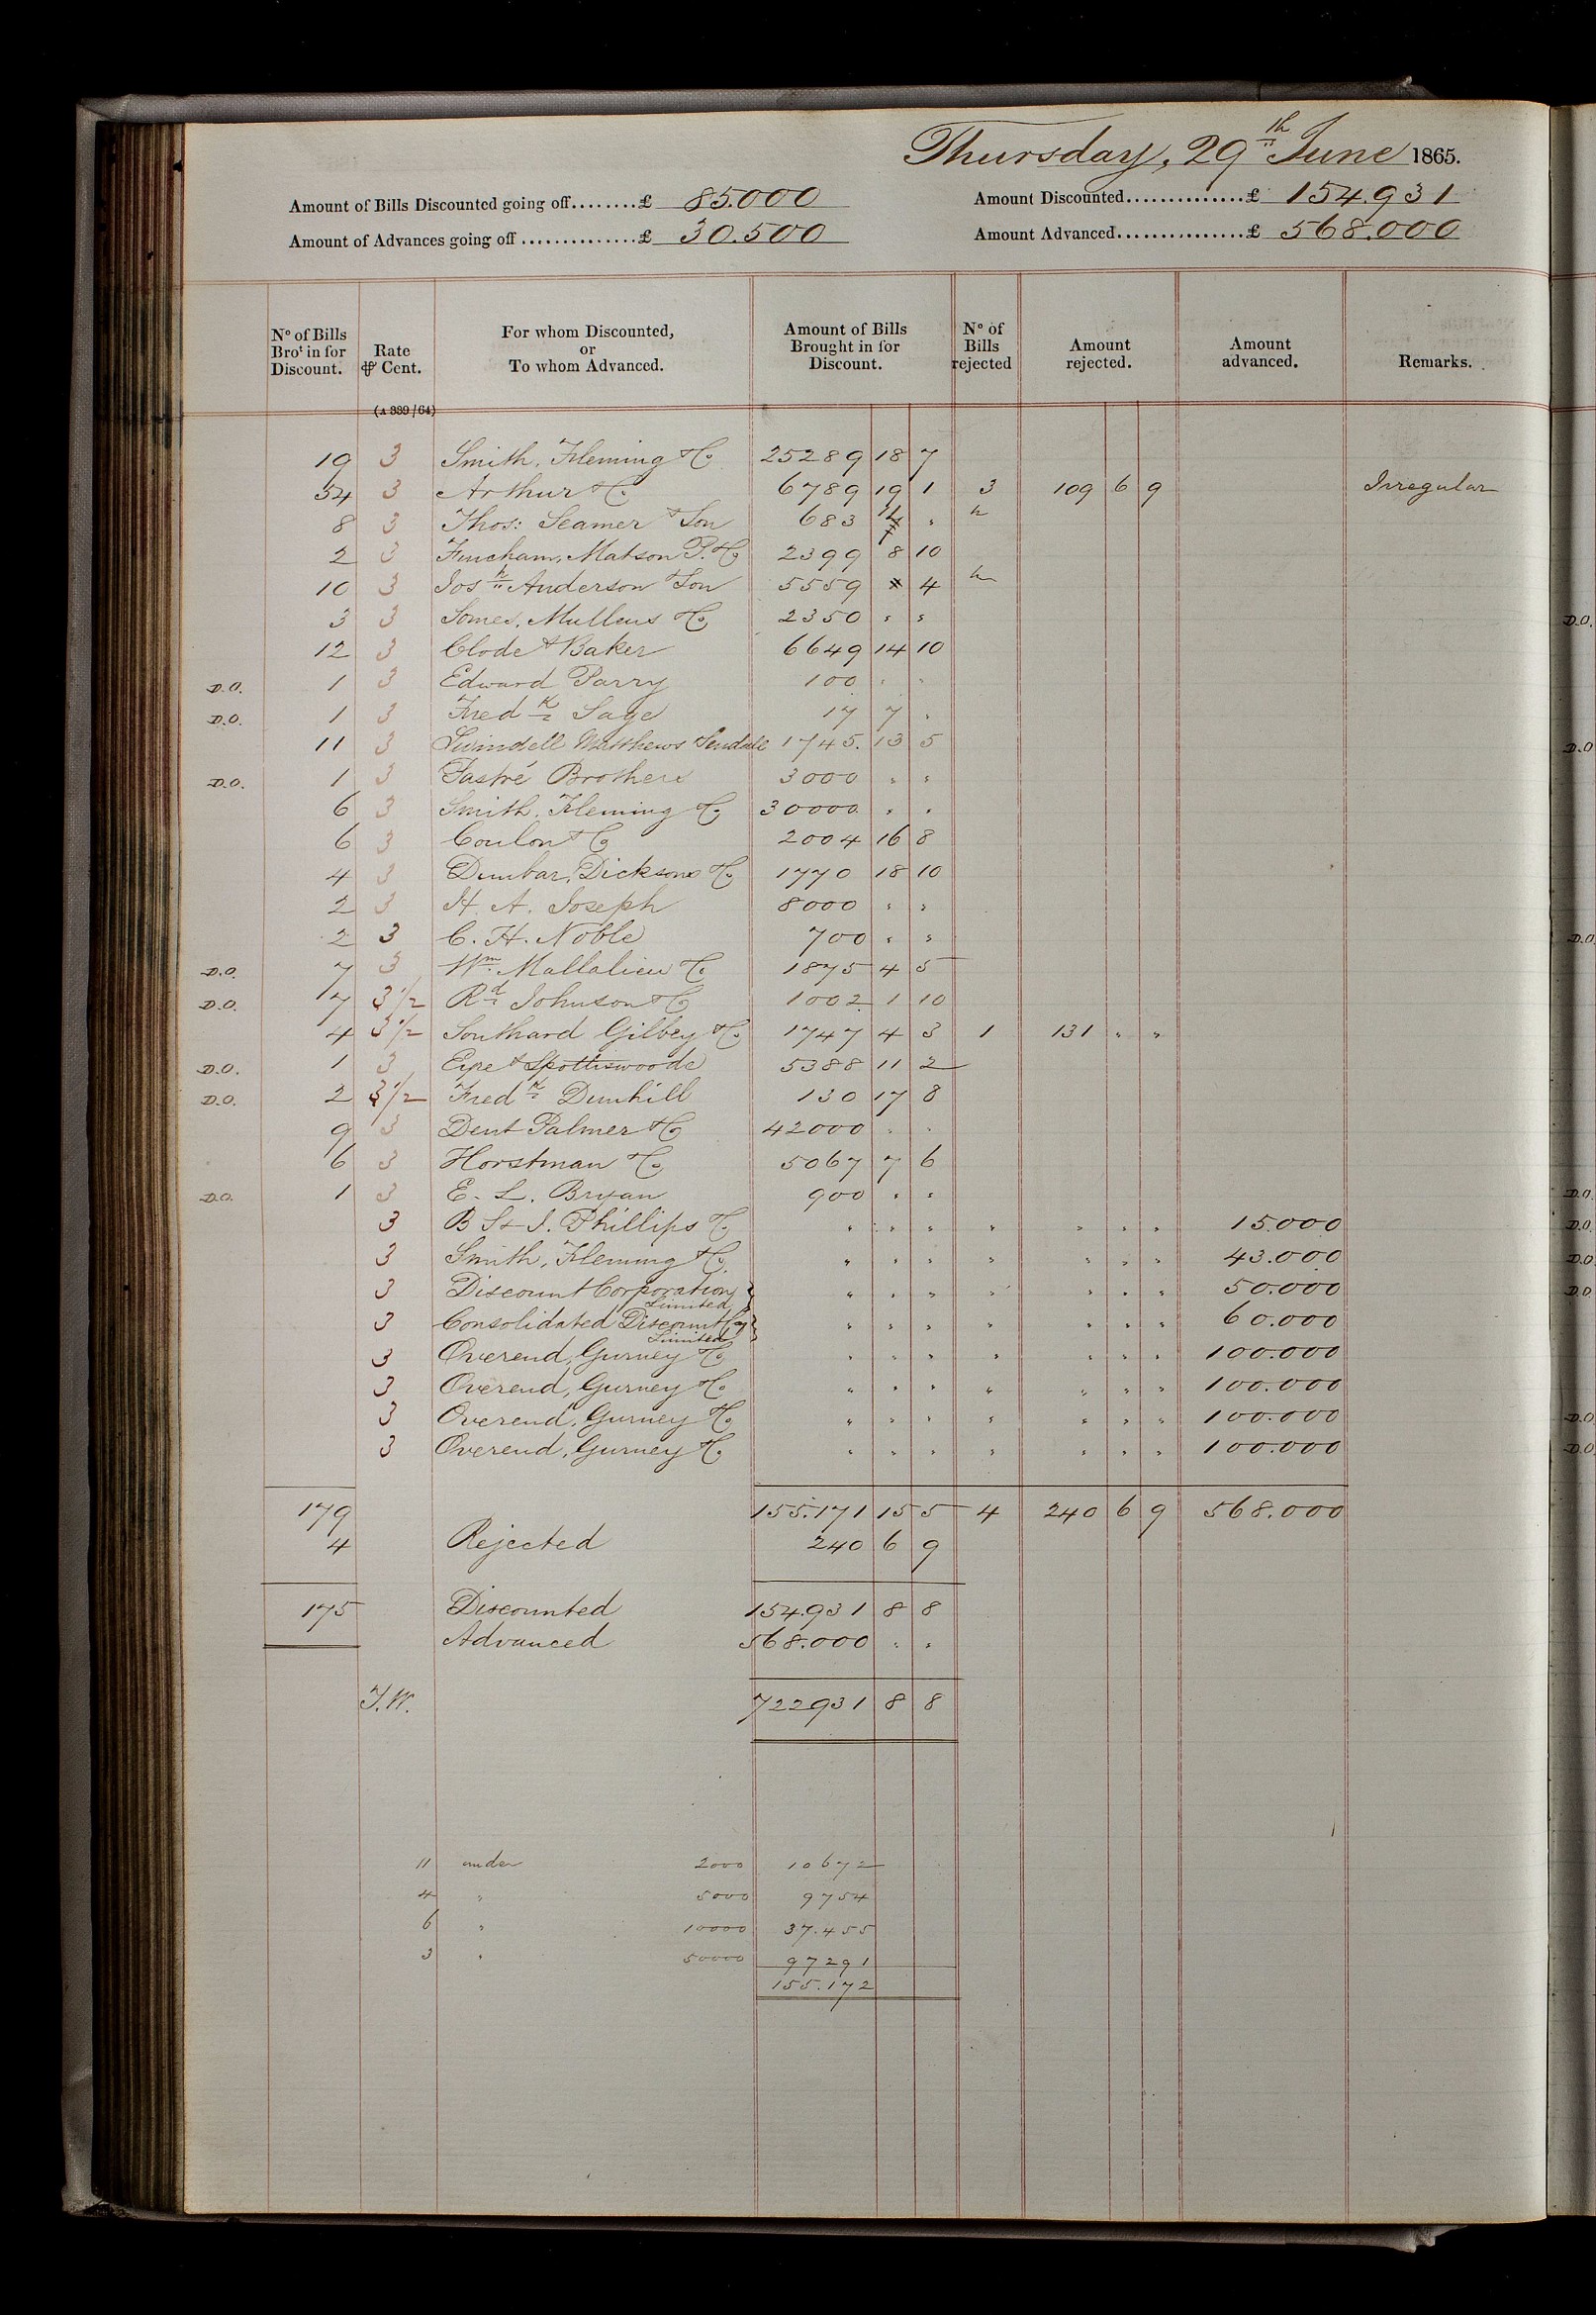 Thursday, 29th June 1865.
Amount of Bills Discounted going off........£ 85.000 Amount Discounted..............£ 154.931
Amount of Advances going off..............£ 30.500 Amount Advanced................£ 568.000
No of Bills Brot in for Discount. Rate ⅌ Cent. For whom Discounted, or To whom Advanced. Amount of Bills Brought in for Discount. No of Bills rejected Amount rejected. Amount advanced. Remarks.
(A 339/64)
19 3 Smith, Fleming & Co 25289 18 7
54 3 Arthur & Co 6789 19 1 3 109 6 9 Irregular
8 3 Thos: Seamer & Son 683 "
2 3 Fincham, Matson P. & Co 2399 8 10
10 3 Josh Anderson & Son 5559 4
3 3 Somes, Mullens & Co 2350 " "
12 3 Clode & Baker 6649 14 10
D.O. 1 3 Edward Parry 100 " "
D.O. 1 3 Fredk Sage 17 7 "
11 3 Swindell Matthews 1745. 13 5
D.O. 1 3 Pastré Brothers 3000 " "
6 3 Smith, Fleming & Co 30000 " "
6 3 Coulon & Co 2004 16 8
4 3 Dunbar, Dicksons & Co 1770 18 10
2 3 H. A. Joseph 8000 " "
2 3 C. H. Noble 700 " "
D.O. 7 3 Wm. Mallalieu & Co 1875 4 5
D.O. 7 3 1/2 Rd Johnson & Co 1002 1 10
4 3 1/2 Southard Gilbey & Co 1747 4 3 1 131 " "
D.O. 1 3 Eyre & Spottiswoode 5388 11 2
D.O. 2 3 1/2 Fredk Dunhill 130 17 8
9 3 Dent Palmer & Co 42000 " "
6 3 Horstman & Co 5067 7 6
D.O. 1 3 E. L. Bryan 900 " "
3 B S & J. Phillips & Co " " " " " " " 15.000
3 Smith, Fleming & Co " " " " " " " 43.000
3 Discount Corporation Limited " " " " " " " 50.000
3 Consolidated Discount Coy Limited " " " " " " " 60.000
3 Overend, Gurney & Co " " " " " " " 100.000
3 Overend, Gurney & Co " " " " " " " 100.000
3 Overend, Gurney & Co " " " " " " " 100.000
3 Overend, Gurney & Co " " " " " " " 100.000
179 155.171 15 5 4 240 6 9 568.000
4 Rejected 240 6 9
175 Discounted 154.931 8 8
Advanced 568.000 " "
J.W. 722931 8 8
11 under 2000 10672
4 " 5000 9754
6 " 10000 37.455
3 " 50000 97291
155.172